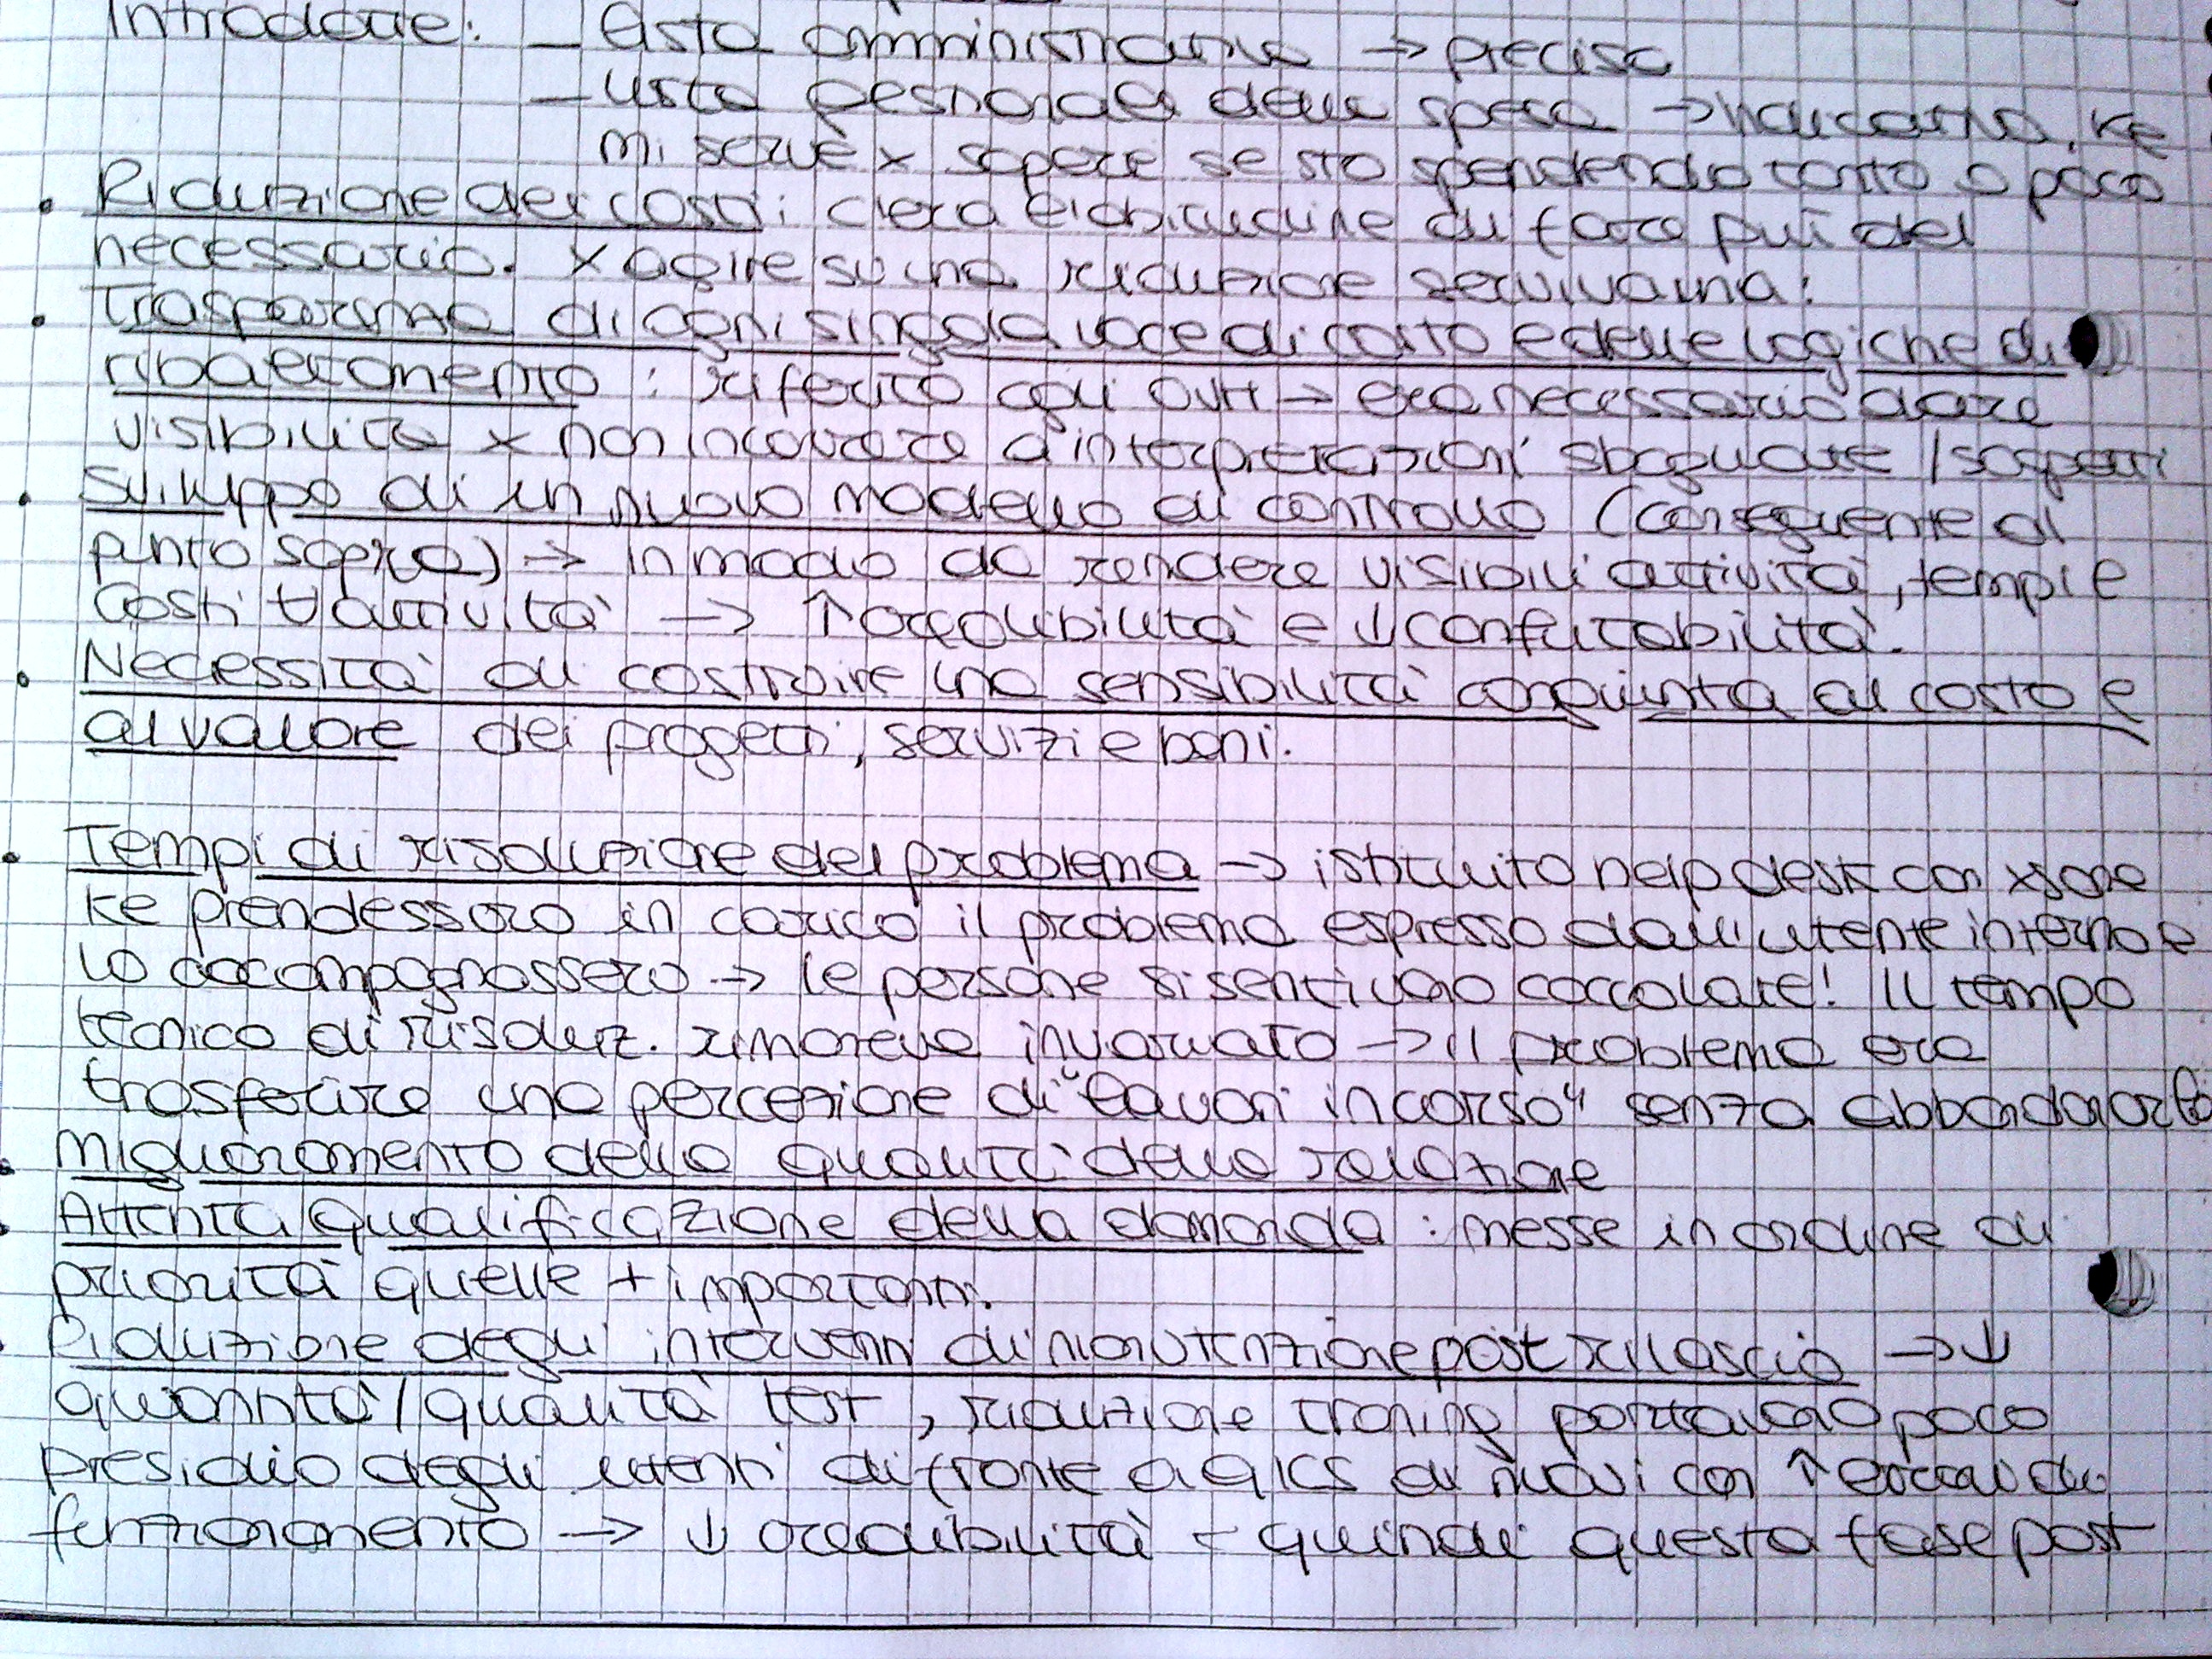 Introdotte: - Vista amministrativa → precisa
- Vista gestionale della spesa → indicativa, ke
mi serve x sapere se sto spendendo tanto o poco
• Riduzione dei costi: c'era l'abitudine di fare più del
necessario. x agire su una riduzione serviva una:
• Trasparenza di ogni singola voce di costo e delle logiche di
ribaltamento: riferito agli OVH → era necessario dare
visibilità x non incorrere a interpretazioni sbagliate / sospetti
• Sviluppo di un nuovo modello di controllo (conseguente al
punto sopra) → in modo da rendere visibili attività, tempi e
costi ∀ attività → ↑ credibilità e ↓ confutabilità.
• Necessità di costruire una sensibilità congiunta al costo e
al valore dei progetti, servizi e beni.
• Tempi di risoluzione del problema → istituito help desk con xsone
ke prendessero in carico il problema espresso dall'utente interno e
lo accompagnassero → le persone si sentivano coccolate! Il tempo
tecnico di risoluz. rimaneva invariato → il problema era
trasferire una percezione di "lavori in corso" senza abbandonarlo
• Miglioramento della qualità della relazione
• Attenta qualificazione della domanda: messe in ordine di
priorità quelle + importanti.
• Riduzione degli interventi di manutenzione post rilascio → ↓
quantità/qualità test, riduzione training portavano poco
presidio degli utenti di fronte a di nuovi con ↑ errori di
funzionamento → ↓ credibilità - quindi questa fase post